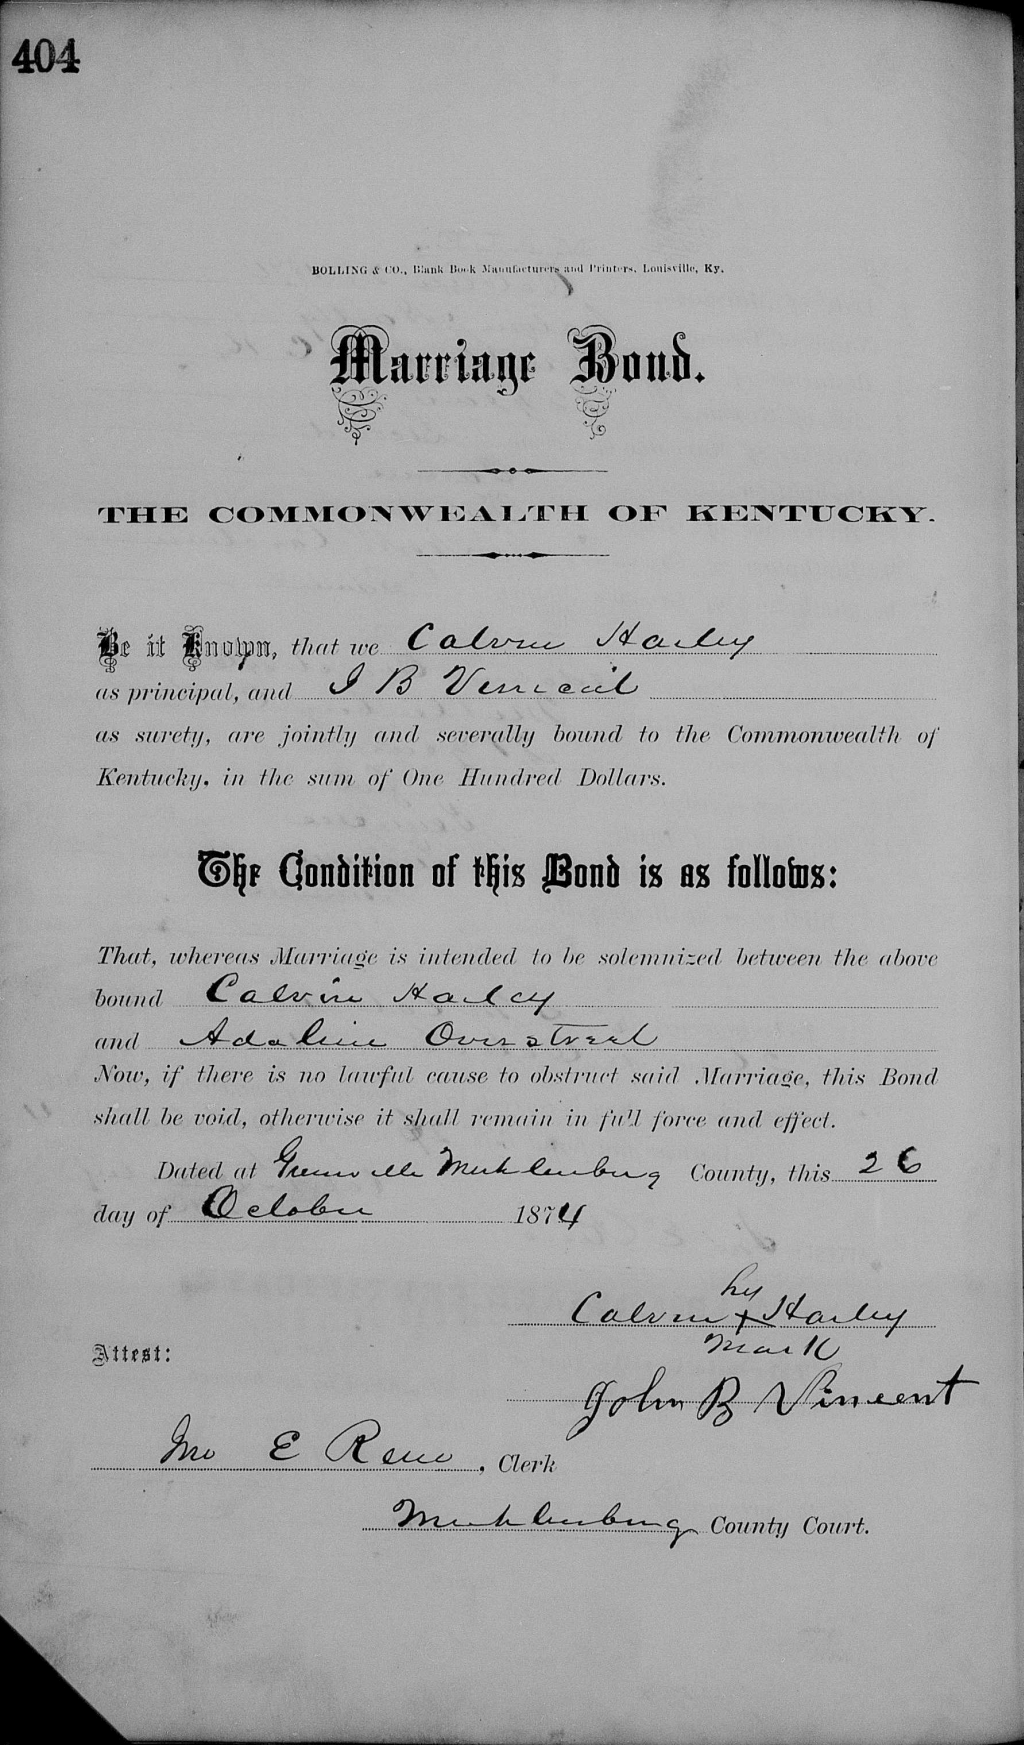 404
BOLLING & CO., Blank Book Manufacturers and Printers, Louisville, Ky.
Marriage Bond.
THE COMMONWEALTH OF KENTUCKY.
Be it Known, that we Calvin Harley
as principal, and J B Vincent
as surety, are jointly and severally bound to the Commonwealth of
Kentucky, in the sum of One Hundred Dollars.
The Condition of this Bond is as follows:
That, whereas Marriage is intended to be solemnized between the above
bound Calvin Harley
and Adaline Overstreet
Now, if there is no lawful cause to obstruct said Marriage, this Bond
shall be void, otherwise it shall remain in full force and effect.
Dated at Greenville Muhlenburg County, this 26
day of October 1874
his
Calvin x Harley
mark
Attest:
John B Vincent
Jno E Reno, Clerk
Muhlenburg County Court.